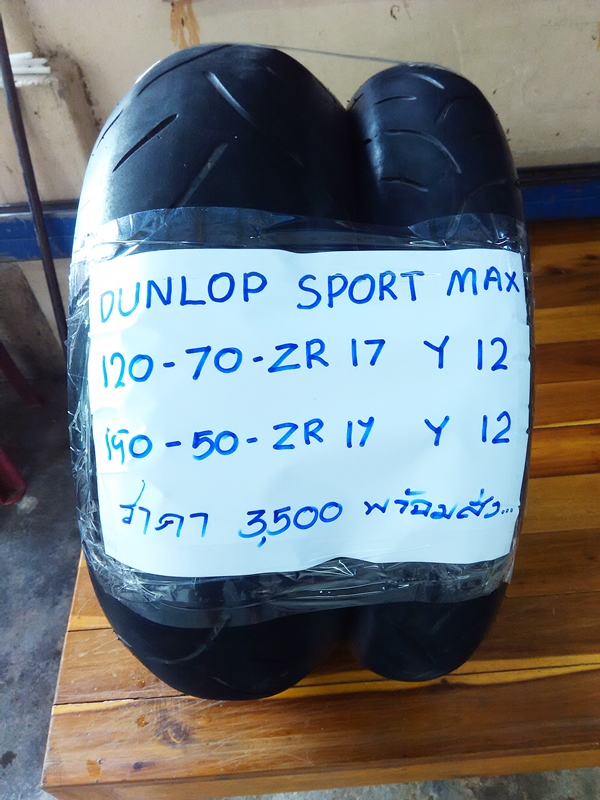 DUNLOP SPORT MAX
120-70-ZR 17 Y 12
190-50-ZR 17 Y 12
ราคา 3,500 พร้อมส่ง...